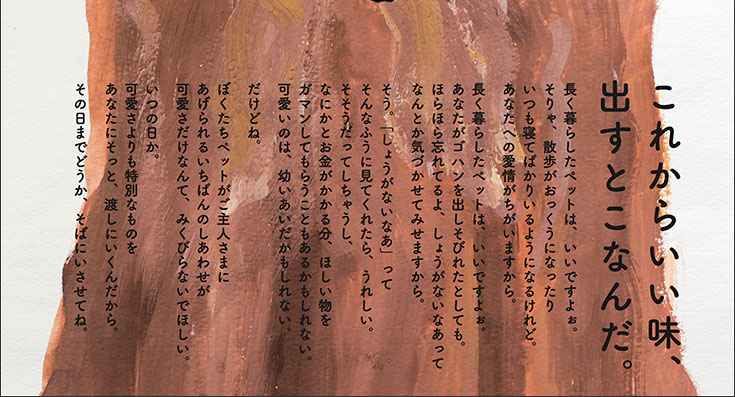 これからいい味、
出すとこなんだ。
長く暮らしたペットは、いいですよぉ。
そりゃ、散歩がおっくうになったり
いつも寝てばかりいるようになるけれど。
あなたへの愛情がちがいますから。
長く暮らしたペットは、いいですよぉ。
あなたがゴハンを出しそびれたとしても。
ほらほら忘れてるよ、しょうがないなあって
なんとか気づかせてみせますから。
そう。「しょうがないなあ」って
そんなふうに見てくれたら、うれしい。
そそうだってしちゃうし、
なにかとお金がかかる分、ほしい物を
ガマンしてもらうこともあるかもしれない。
可愛いのは、幼いあいだかもしれない。
だけどね。
ぼくたちペットがご主人さまに
あげられるいちばんのしあわせが
可愛さだけなんて、みくびらないでほしい。
いつの日か。
可愛さよりも特別なものを
あなたにそっと、渡しにいくんだから。
その日までどうか、そばにいさせてね。